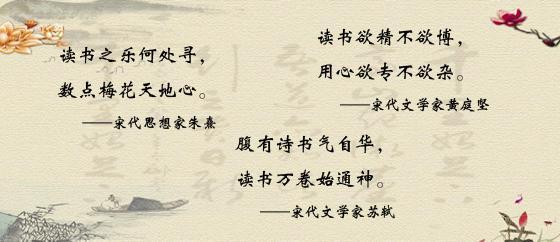 读书之乐何处寻，
数点梅花天地心。
——宋代思想家朱熹
读书欲精不欲博，
用心欲专不欲杂。
——宋代文学家黄庭坚
腹有诗书气自华，
读书万卷始通神。
——宋代文学家苏轼